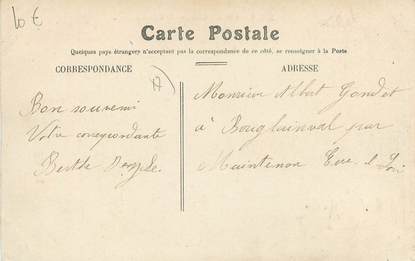 10 €
Carte Postale
Quelques pays étrangers n'acceptant pas la correspondance de ce côté, se renseigner à la Poste
CORRESPONDANCE
ADRESSE
Bon souvenir
Votre correspondante
Berthe
Monsieur Albert Gondet
à Bouglainval par
Maintenon Eure & Loir